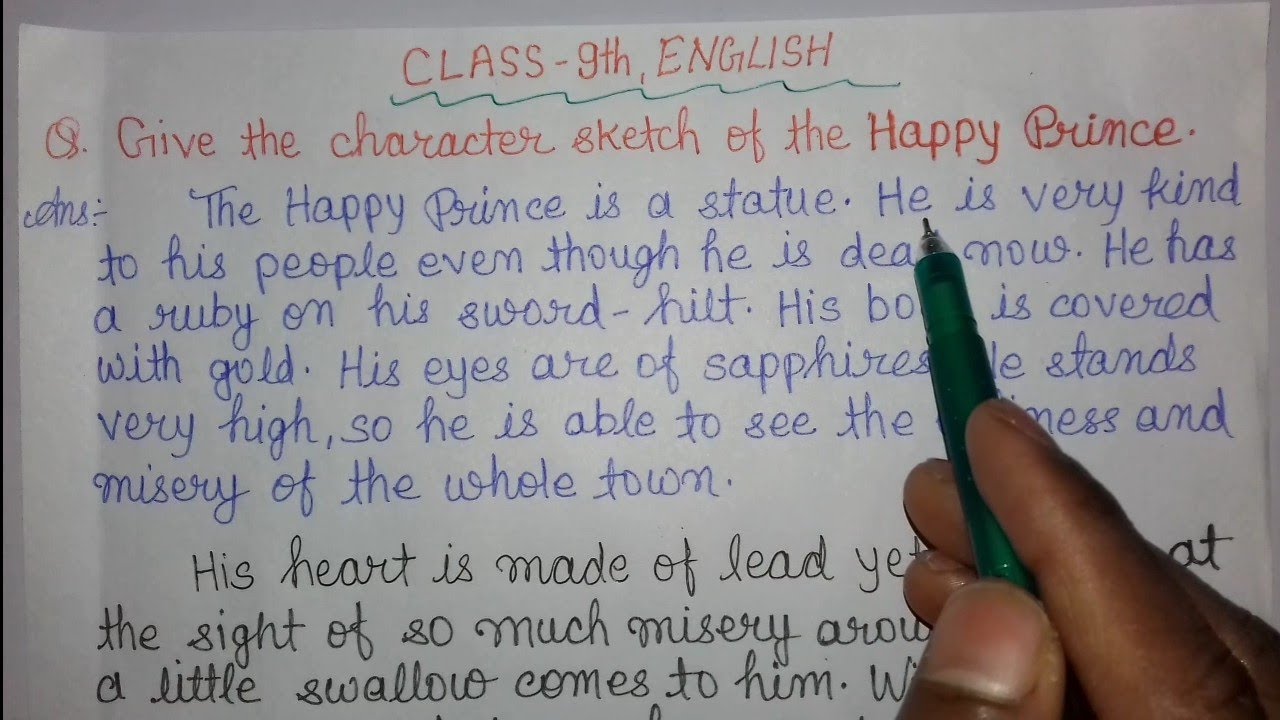 CLASS-9th, ENGLISH
Q. Give the character sketch of the Happy Prince.
Ans:- The Happy Prince is a statue. He is very kind
to his people even though he is dea now. He has
a ruby on his sword-hilt. His bo is covered
with gold. His eyes are of sapphires He stands
very high, so he is able to see the and
misery of the whole town.
His heart is made of lead yet at
the sight of so much misery
a little swallow comes to him.